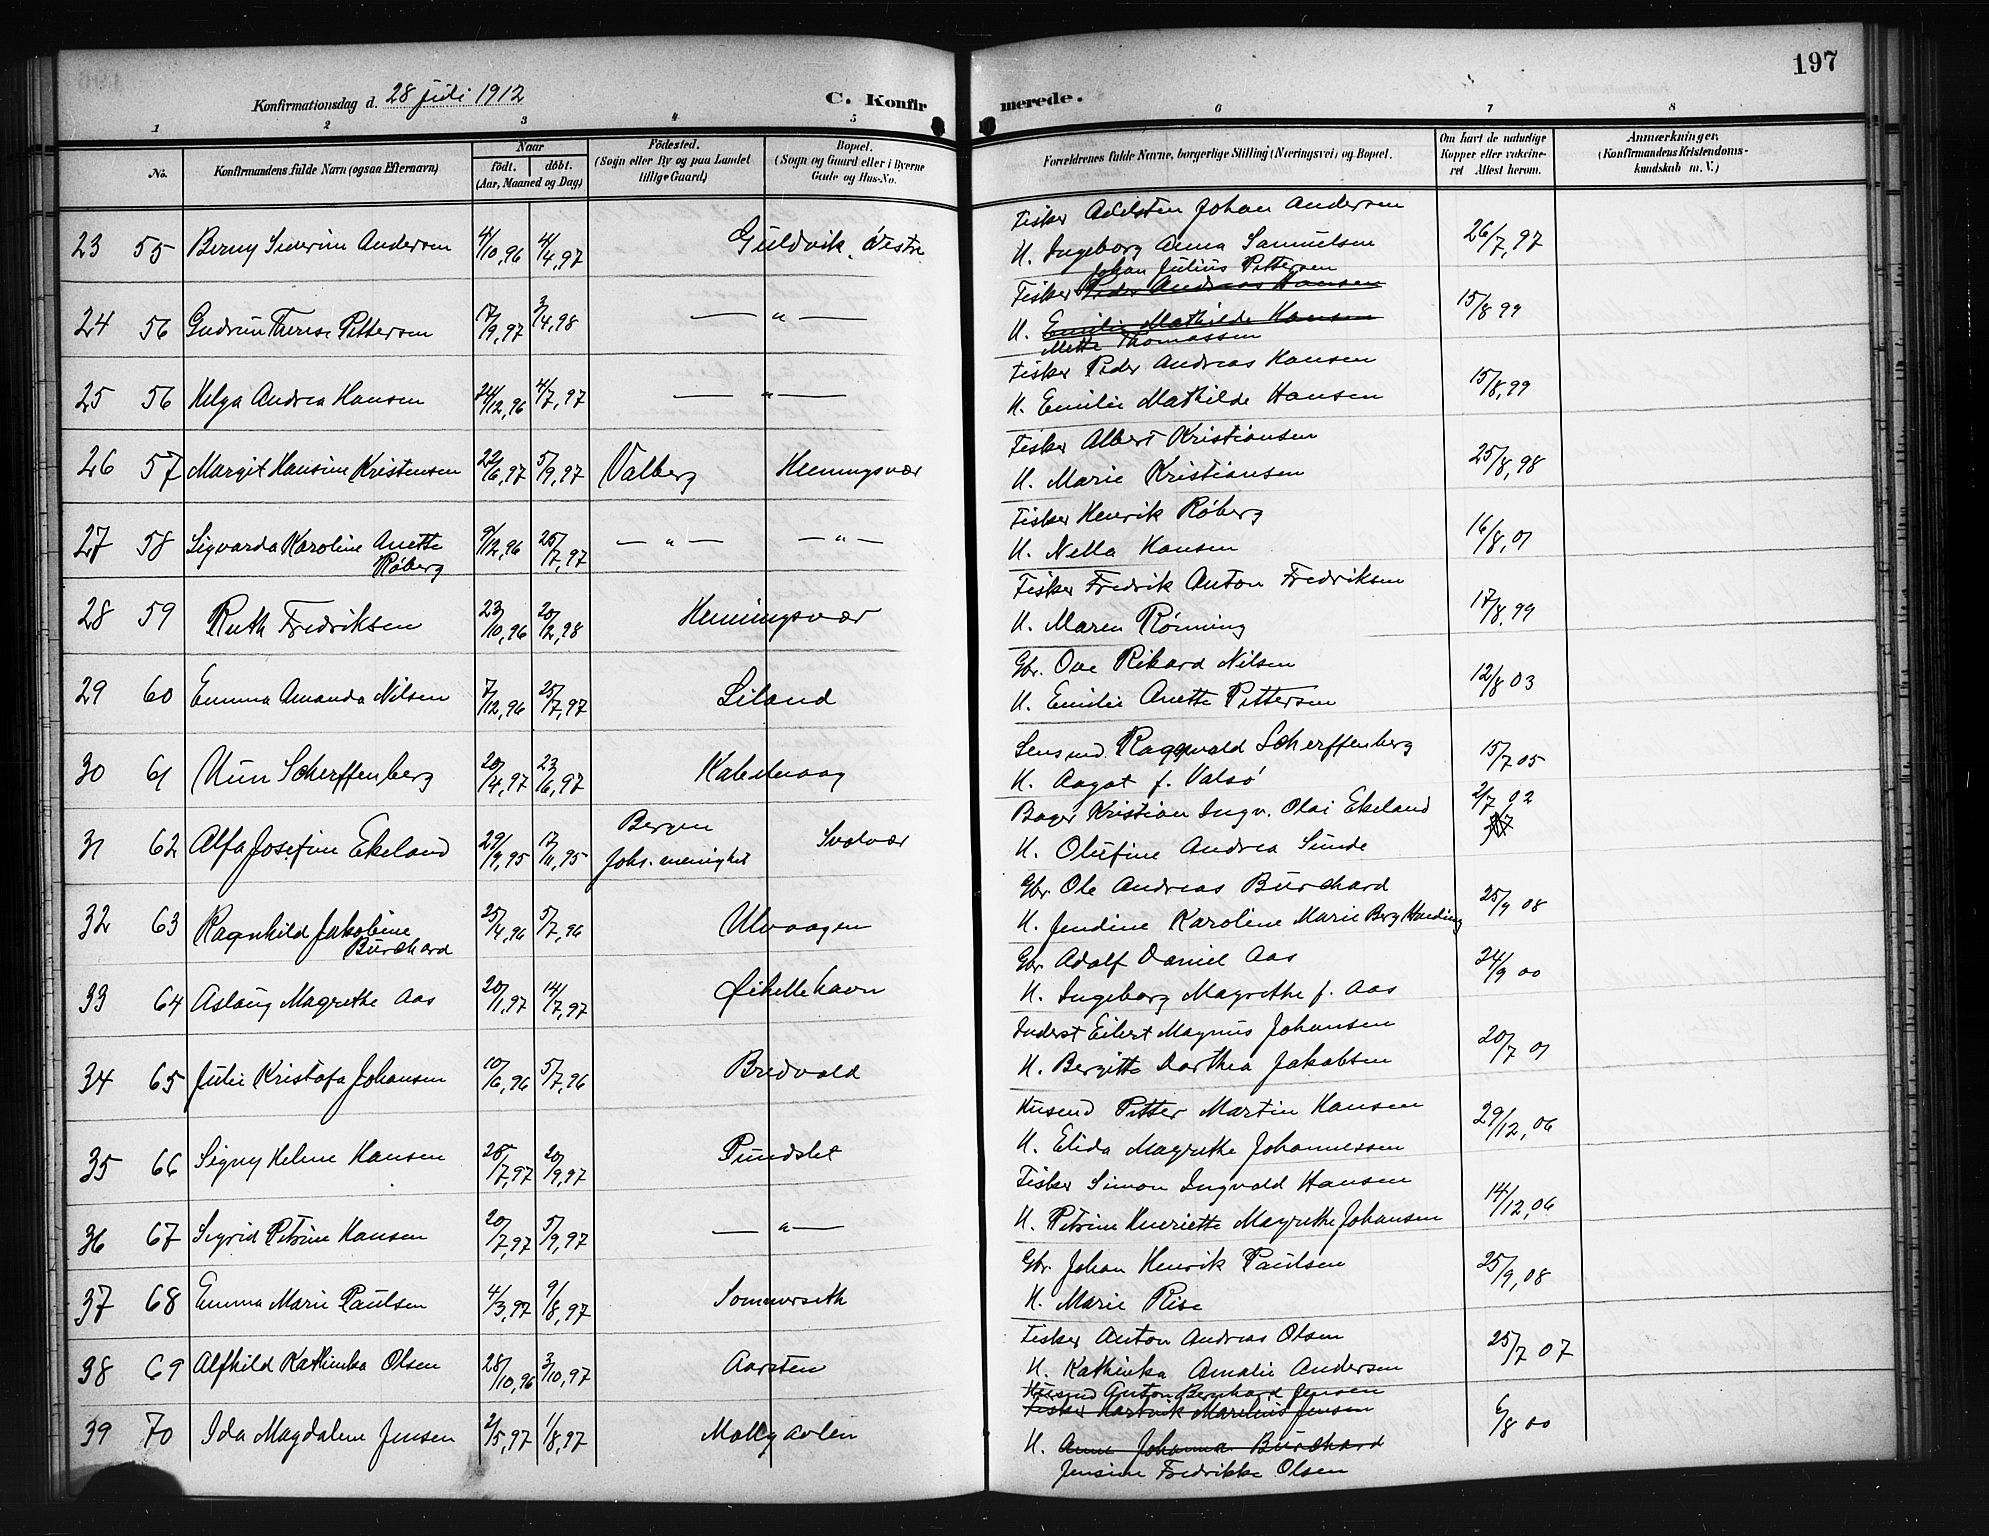 197
Konfirmationsdag d. 28 juli 1912
C. Konfirmerede.
1 2 3 4 5 6 7 8
No.
Konfirmandens fulde Navn (ogsaa Efternavn)
Naar
født. døbt.
(Aar, Maaned og Dag)
Fødested.
(Sogn eller By og paa Landet
tillige Gaard)
Bopæl.
(Sogn og Gaard eller i Byerne
Gade og Hus-No.
Forældrenes fulde Navne, borgerlige Stilling (Næringsvei) og Bopæl.
Om havt de naturlige
Kopper eller vakcine-
ret Attest herom.
Anmærkninger.
(Konfirmandens Kristendoms-
kundskab m. V.)
23 55 Berny Severine Andersen 4/10,96 4/4,97 Guldvik, østre
Fisker Adelsten Johan Andersen
H. Ingeborg Anna Samuelsen 26/7,97
24 56 Gudrun Therese Pettersen 17/9,97 3/4,98 — " —
Johan Julius Pettersen
Fisker Peder Andreas Hansen
H. Emilie Mathilde Hansen 15/8 99
Mette Thomassen
25 56 Helga Andrea Hansen 24/12,96 4/7,97 — " —
Fisker Peder Andreas Hansen
H. Emilie Mathilde Hansen 15/8,99
26 57 Margit Hansine Kristensen 22/6,97 5/9,97 Valberg Henningsvær
Fisker Albert Kristiansen
H. Marie Kristiansen 25/8,98
27 58 Sigvarda Karoline Anette
Røberg 9/12,96 25/7,97 — " — — " —
Fisker Henrik Røberg
H. Nella Hansen 16/8,01
28 59 Ruth Fredriksen 23/10,96 20/2,98 Henningsvær
Fisker Fredrik Anton Fredriksen
H. Maren Rønning 17/8,99
29 60 Emma Amanda Nilsen 7/12,96 25/7,97 Liland
Gbr. Ove Rikard Nilsen
H. Emilie Anette Pettersen 12/8 03
30 61 Unn Scherffenberg 20/4,97 23/6,97 Kabelvaag
Lensmd Ragnvald Scherffenberg
H. Aagot f. Valsø 15/7 05
31 62 Alfa Josefine Ekeland 29/9,95 17/11,95 Bergen
Johs. menighet Svolvær
Bager Kristian Ingv. Olai Ekeland 2/7 02
H. Olufine Andrea Sunde
32 63 Ragnhild Jakobine
Burchard 25/4,96 5/7,96 Ulvaagen
Gbr. Ole Andreas Burchard
H. Jendine Karoline Marie Berg Harding 25/9 08
33 64 Aslaug Magrethe Aas 20/1,97 14/7,97 Ørkellehavn
Gbr Adolf Daniel Aas
H. Ingeborg Magrethe f. Aas 24/9 00
34 65 Julie Kristofa Johansen 10/6,96 5/7,96 Budvold
Inderst Eilert Magnus Johansen
H. Bergitte Dorthea Jakobsen 20/7 01
35 66 Signy Helene Hansen 28/7,97 20/9,97 Pundslet
Husmd Petter Martin Hansen
H. Elida Magrethe Johannessen 29/12,06
36 67 Sigrid Petrine Hansen 20/7,97 5/9,97 — " —
Fisker Simon Ingvald Hansen
H. Petrine Henriette Magrethe Johansen 14/12,06
37 68 Emma Marie Paulsen 4/3,97 9/8,97 Sommerseth
Gbr. Johan Henrik Paulsen
H. Marie Rise 25/9,08
38 69 Alfhild Kathinka Olsen 28/10,96 3/10,97 Aarsten
Fisker Anton Andreas Olsen
H. Kathinka Amalie Andersen 25/7 07
39 70 Ida Magdalene Jensen 2/5,97 1/8,97 Molly
Husmd Anton Bernhard Jensen
Fisker Hartvik Marelius Jensen
H. Anne Johanna Burchard 6/8 00
Jensine Fredrikke Olsen